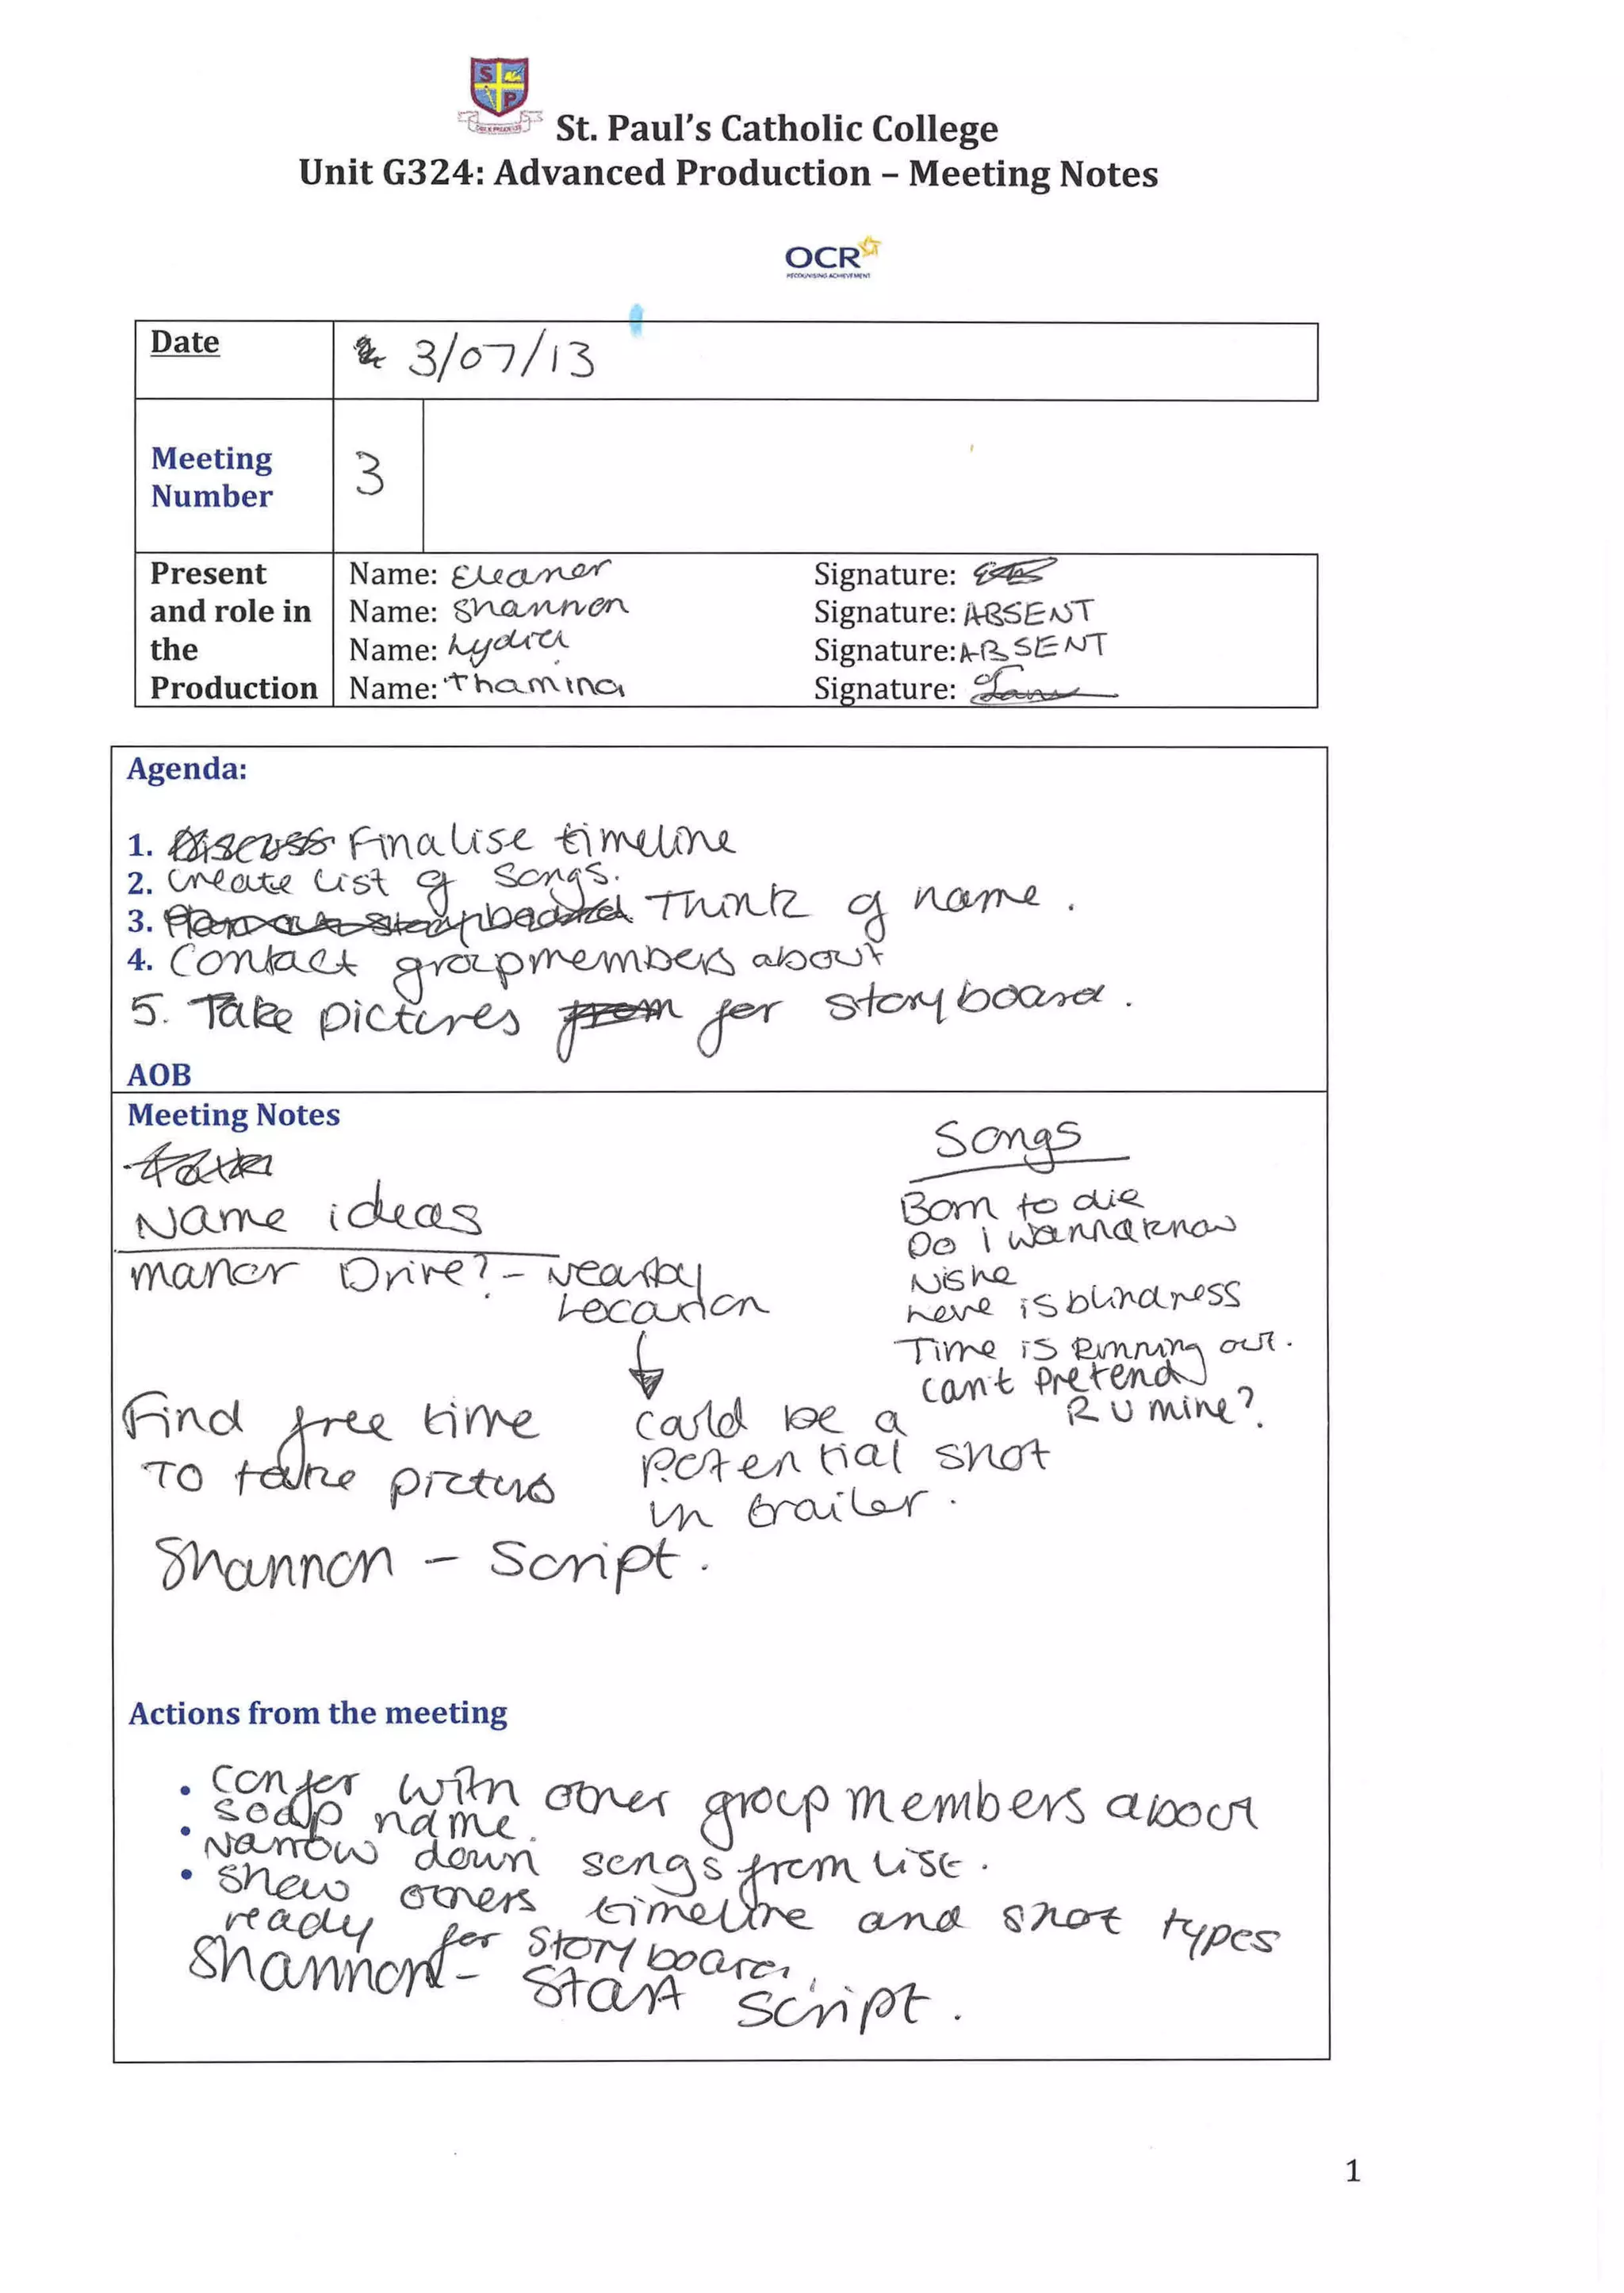 S
P
St. Paul's Catholic College
Unit G324: Advanced Production – Meeting Notes
OCR
RECOGNISING ACHIEVEMENT
Date 3/07/13
Meeting
Number 3
Present Name: Eleanor Signature:
and role in Name: Shannon Signature: ABSENT
the Name: Lydia Signature: ABSENT
Production Name: Thamina Signature:
Agenda:
1. Discuss Finalise timeline
2. Create List of Songs.
3. Plan out storyboard Think of name.
4. Contact groupmembers about
5. Take pictures from for storyboard.
AOB
Meeting Notes
Songs
Name ideas
Born to die
Do I wanna know
Manor Drive? - Nearby
Location
Love is blindness
Time is Running out.
Can't Pretend
R U mine?
Find free time
To take pictures
Could be a
Potential shot
in trailer.
Shannon - Script.
Actions from the meeting
• Confer with other group members about
soap name.
• Narrow down songs from list.
• Show others timeline and shot types
ready for storyboard.
Shannon - Start script.
1